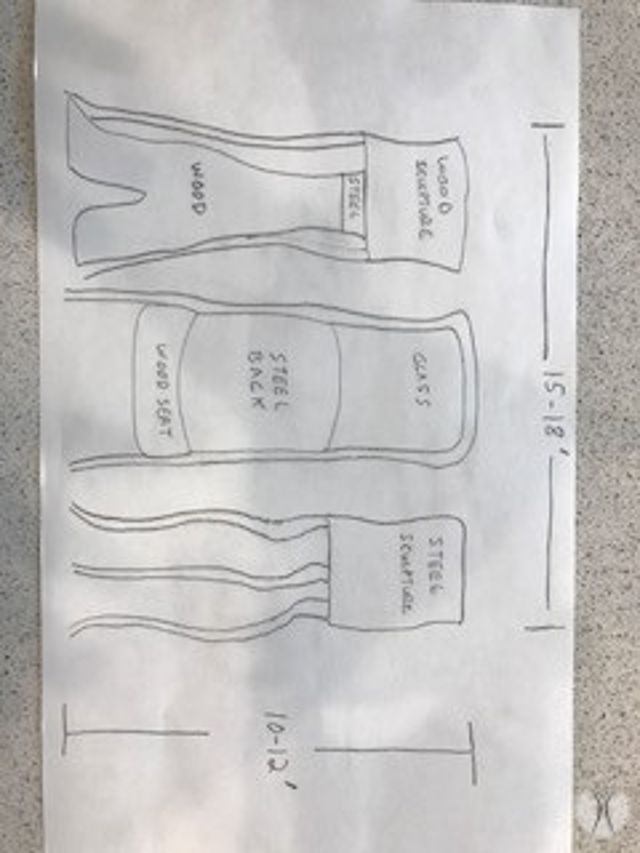 15-18'
WOOD
SCULPTURE
STEEL
WOOD
GLASS
STEEL
BACK
WOOD SEAT
STEEL
SCULPTURE
10-12'